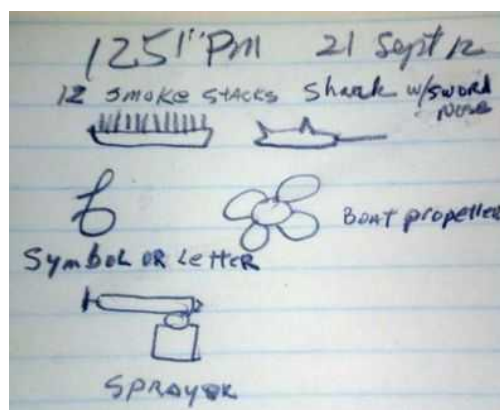 1251" Pm 21 Sept 12
12 Smoke Stacks Shark w/SWORD
NOSE
BOAT propeller
Symbol OR Letter
SPRAYER